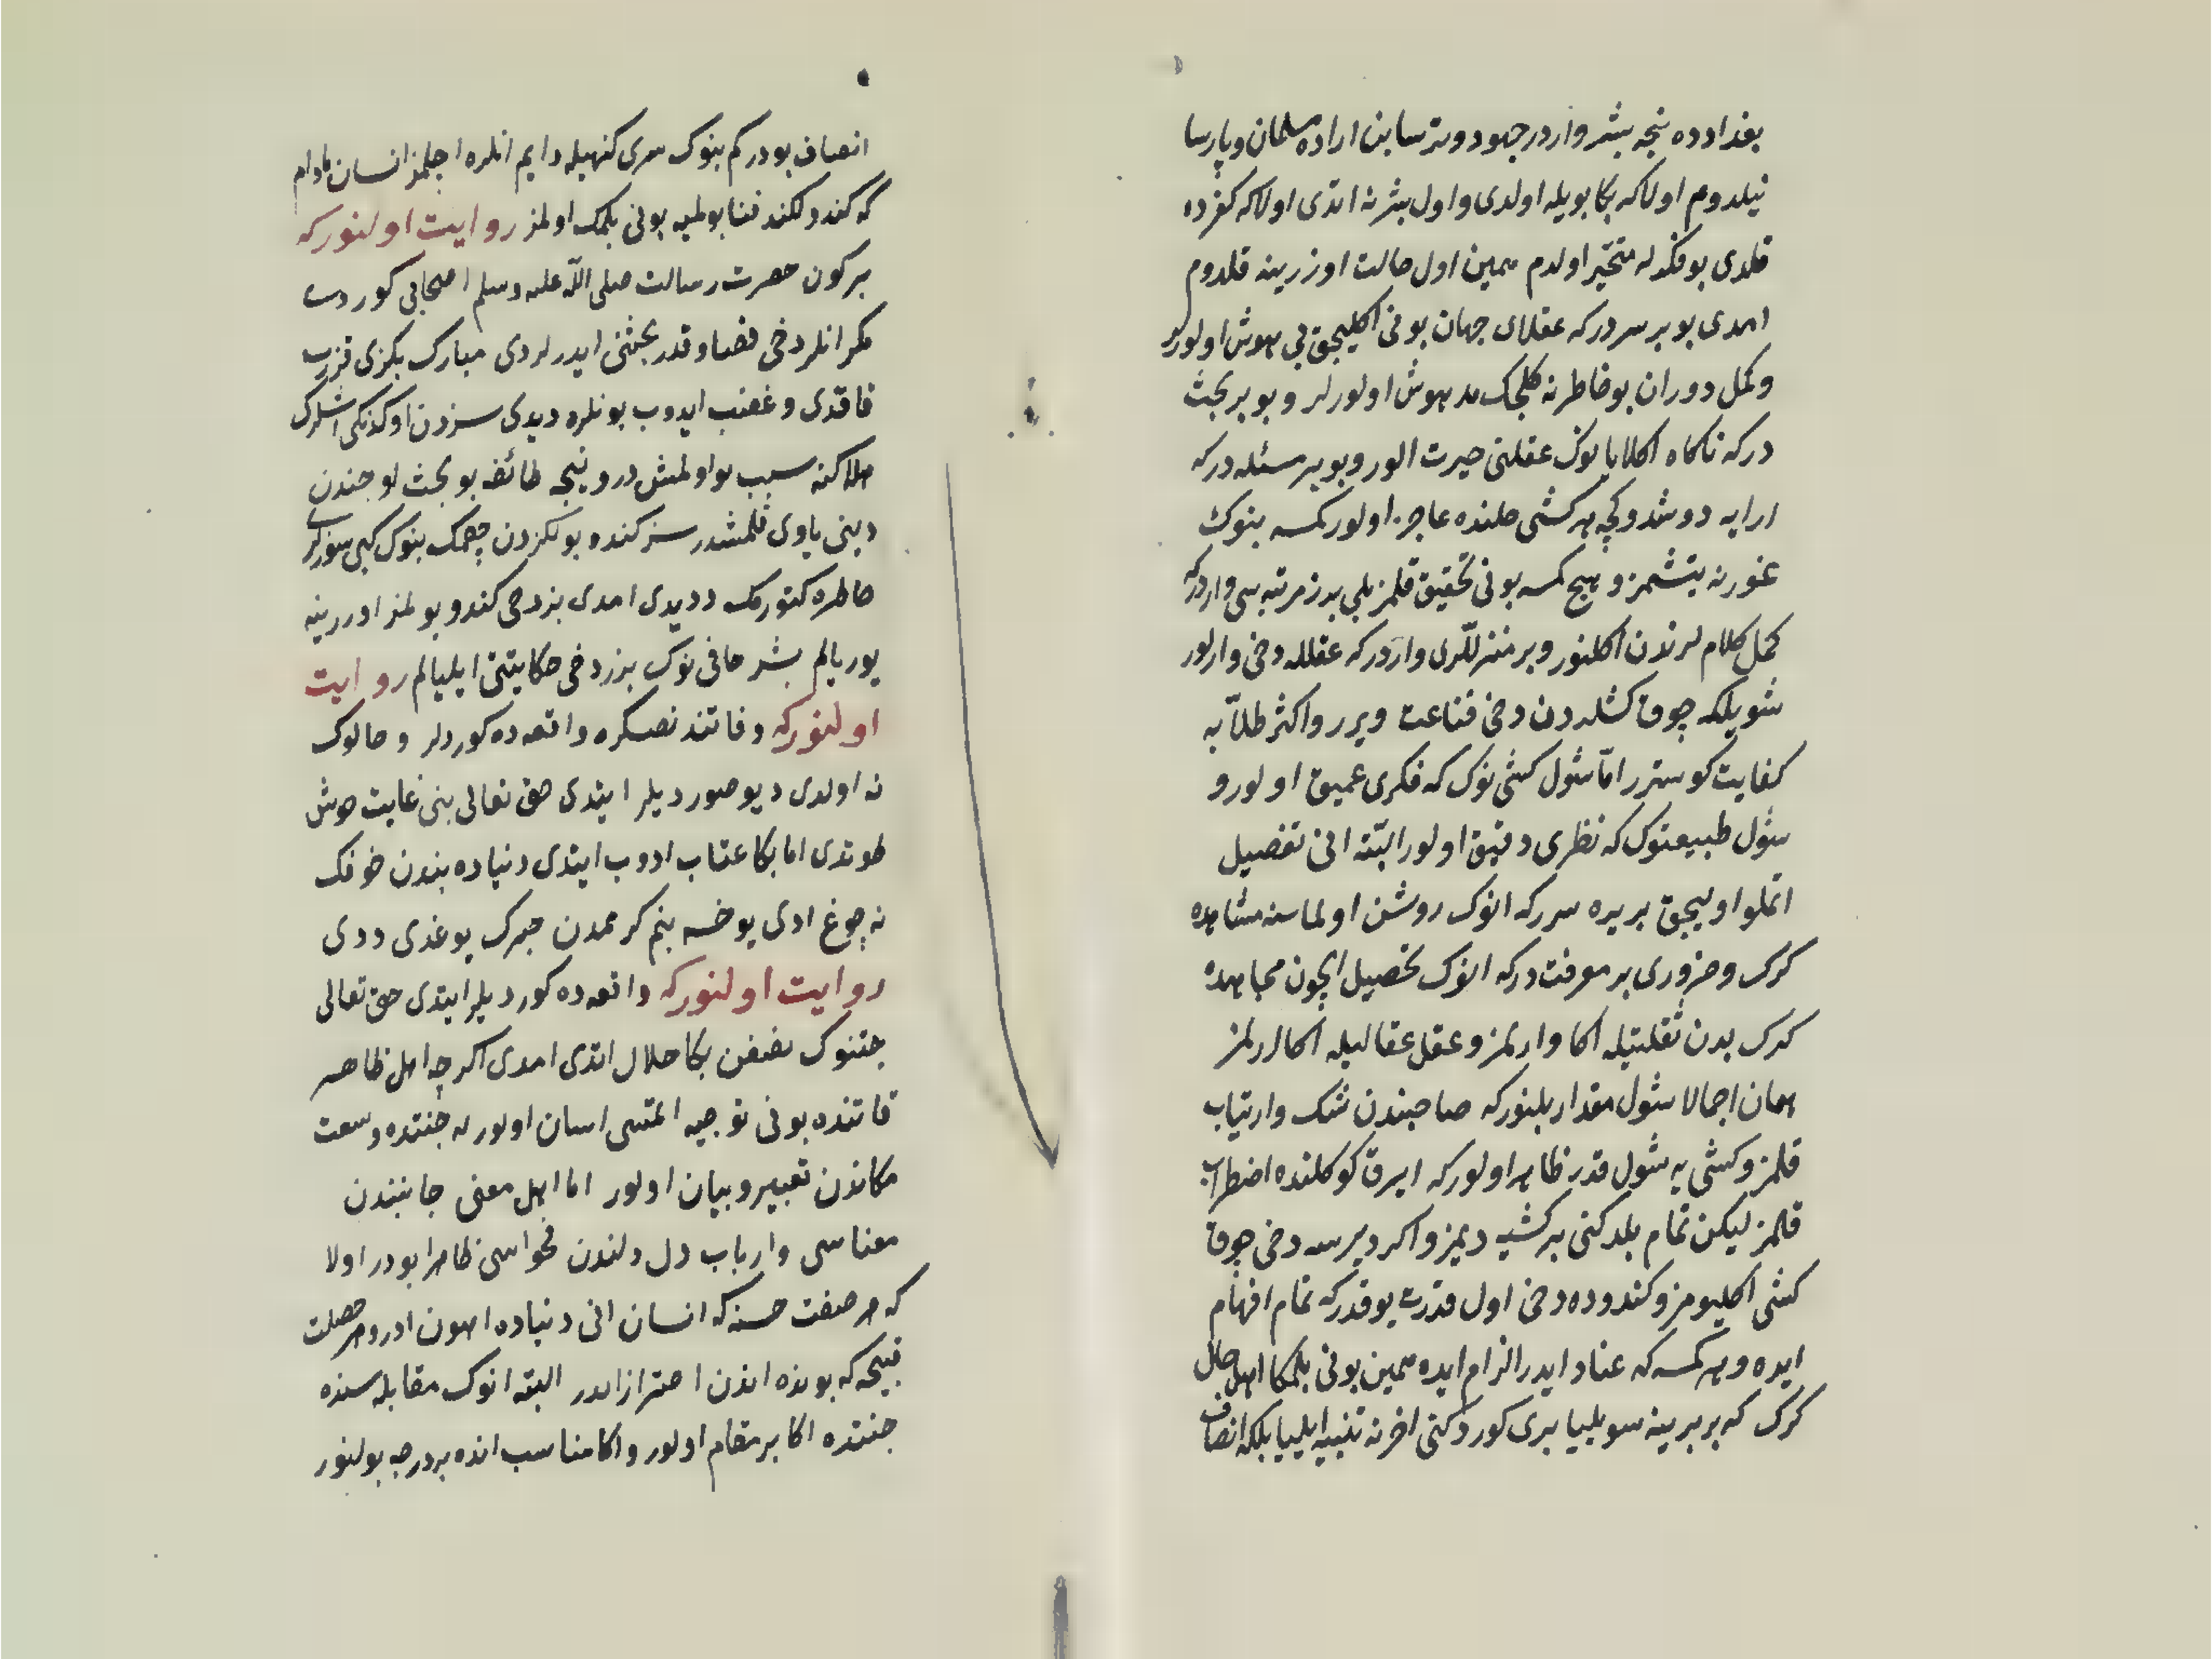 بغدادده نیجه بشر واردر جهود و ترسا بن اراده مسلمان و پارسا
نیلدوم اولاکه بکا بویله اولدی و اول بشر نه اتدی اولاکه کفرده
قلدی بو فکرله متحیر اولدم همین اول حالت اوزرینه قلدوم
امدی بو بر سردرکه عقلای جهان بونی اکلیجق بی هوش اولورلر
و کمل دوران بو خاطرنه کلجک مدهوش اولورلر و بو بر بحث
درکه ناکاه اکلایانوک عقلنی حیرت الور و بو بر مسئله درکه
ارایه دوشدوکچه هر کشی حلنده عاجز اولور کمسه بنوک
غورنه یتشمز و هیچ کمسه بونی تحقیق قلمز بلی بر مرتبه سی واردرکه
کمل کلام لرندن اکلنور و بر منزللری واردرکه عقلله دخی وارلور
شویلکه چوق کشلردن دخی قناعت ویرر و اکثر طلابه
کفایت کوسترر اما شول کشی نوک که فکری عمیق اولور و
شول طبیعتوک که نظری دقیق اولور البته انی تفصیل
اتملو اولیجق بر یره سررکه انوک روشن اولماسنه مشاهده
کرک و ضروری بر معرفت درکه انوک تحصیل ایچون مجاهده
کرک بدن ثقلتیله اکا وارلمز و عقل عقالیله اکا ارلمز
همان اجمالا شول مقدار بلنورکه صاحبندن شک و ارتیاب
قلمز و کشی یه شول قدر ظاهر اولورکه ایرق کوکلنده اضطراب
قلمز لیکن تمام بلدکنی بر کشیه دیمز و اکر دیرسه دخی چوق
کشی اکلیومز و کندوده دخی اول قدرت یوقدرکه تمام افهام
ایده و هر کمسه که عناد ایدر الزام ایده همین بونی بلمکا اهل حال
کرک که بر برینه سویلیا بری کوردکنی اخرنه تنبیه ایلیا بلکه انصاف
انصاف بودر کم بنوک سری کنهیله دایم انلره اچلمز انسان مادام
که کندولکندن فنا بولمیه بونی بلمک اولمز روایت اولنورکه
بر کون حضرت رسالت صلی الله علیه وسلم اصحابی کوردی
مکر انلر دخی قضا و قدر بحثنی ایدرلردی مبارک بکزی قزرب
قاقدی و غضب ایدوب بونلره دیدی سزدن اوکدنکی اشلرک
هلاکنه سبب بو اولمش در و نیجه طائفه بو بحث اوجندن
دینی یاوی قلمشدر سز کنده بولکزدن چقمک بنوک کبی سوزلری
خاطره کتورمک ددیدی امدی بز دخی کندو یولمز اوزرینه
یوریالم بشر حافی نوک بز دخی حکایتنی ایلیالم روایت
اولنورکه وفاتندنصکره واقعه ده کوردلر و حالوک
نه اولدی دیو صوردیلر ایتدی حق تعالی بنی غایت خوش
طوتدی اما بکا عتاب ادوب ایتدی دنیاده بندن خوفک
نه چوغ ادی یوخسه بنم کرممدن خبرک یوغدی ددی
روایت اولنورکه واقعه ده کوردیلر ایتدی حق تعالی
جنتوک نصفن بکا حلال اتدی امدی اکرچه اهل ظاهر
قاتنده بونی توجیه اتمسی اسان اولور له جنتده وسعت
مکاندن تعبیر و بیان اولور اما اهل معنی جانبندن
معناسی و ارباب دل دلندن فحواسی ظاهرا بودر اولا
که هر صفت حسنه که انسان انی دنیاده ادر و هر خصلت
قبیحه که بونده اندن احتراز ادر البته انوک مقابله سنده
جنتده اکا بر مقام اولور و اکا مناسب انده بر درجه بولنور